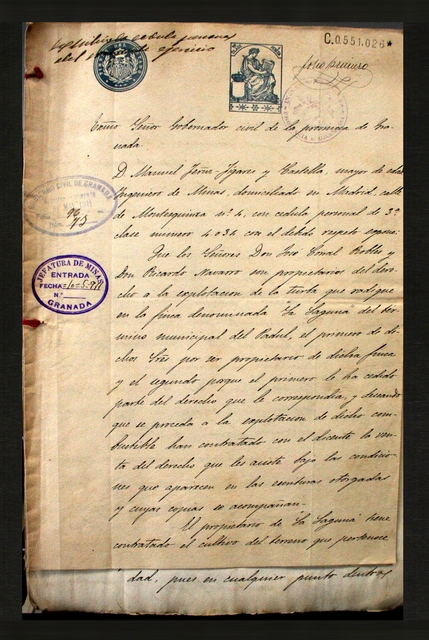 C.0.551.026*
folio primero
Exmo Señor Gobernador civil de la provincia de Gra-
nada.
D. Manuel y Castilla, mayor de edad
Ingeniero de Minas, domiciliado en Madrid, calle
de Montesquinza nº 4, con cedula personal de 3ª
clase número 4034 con el debido respeto expone:
Que los Señores Don José Robles y
Don Ricardo Navarro son propietarios del dere-
cho a la explotacion de la turba que radique
en la finca denominada "La Laguna" del tér-
mino municipal del Padul, el primero de di-
chos Sres por ser propietario de dicha finca
y el segundo porque el primero le ha cedido
parte del derecho que le correspondia, y deseando
que se proceda a la explotacion de dicho com-
bustible han contratado con el dicente la ven-
ta del derecho que les asiste bajo las condicio-
nes que aparecen en las escrituras otorgadas
y cuyas copias se acompañan.
El propietario de "La Laguna" tiene
contratado el cultivo del terreno que pertenece
dad, pues en cualquier punto dentro
CIVIL DE GRANADA
JEFATURA DE MINAS
ENTRADA
FECHA
N.º
GRANADA